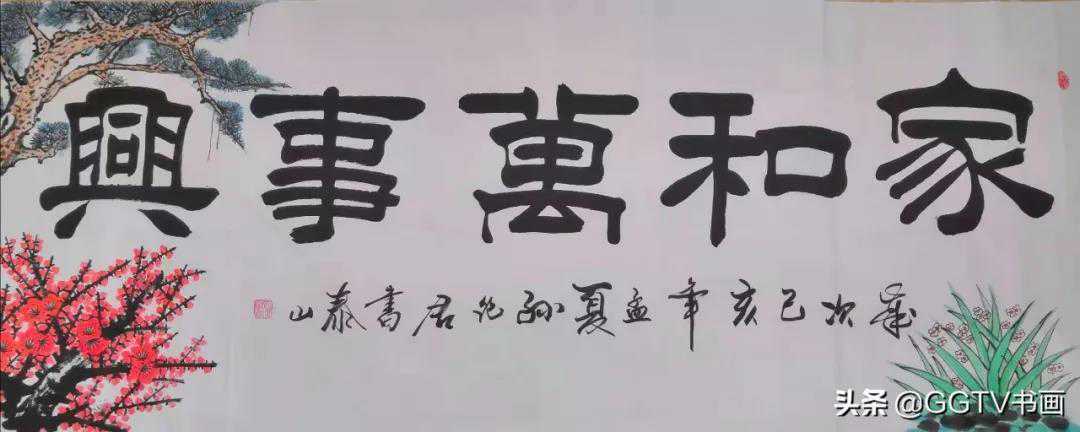 家和萬事興
歲次己亥年孟夏孫君書泰山
头条 @GGTV书画